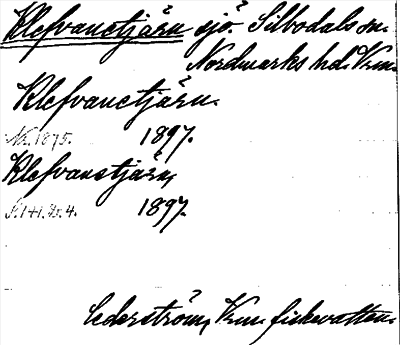 Klefvanetjärn sjö. Silbodals sn.
Nordmarks hd. Vrm.
Klefvanetjärn.
1897.
Klefvanstjärn,
1897.
Cederström, Vrm. fiskevatten.